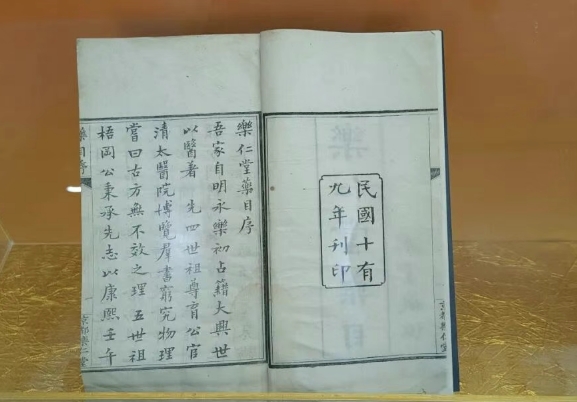 民國十有
九年刊印
京都樂仁堂
樂仁堂藥目序
吾家自明永樂初占籍大興世
以醫著 先四世祖尊育公官
清太醫院博覽羣書窮究物理
嘗曰古方無不效之理五世祖
梧岡公秉承先志以康熙壬午
藥目序
京都樂仁堂